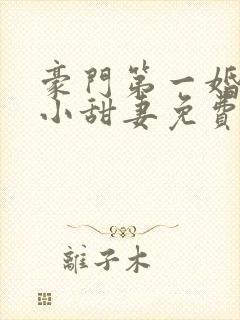 豪門第一婚
小甜妻免費
離子木